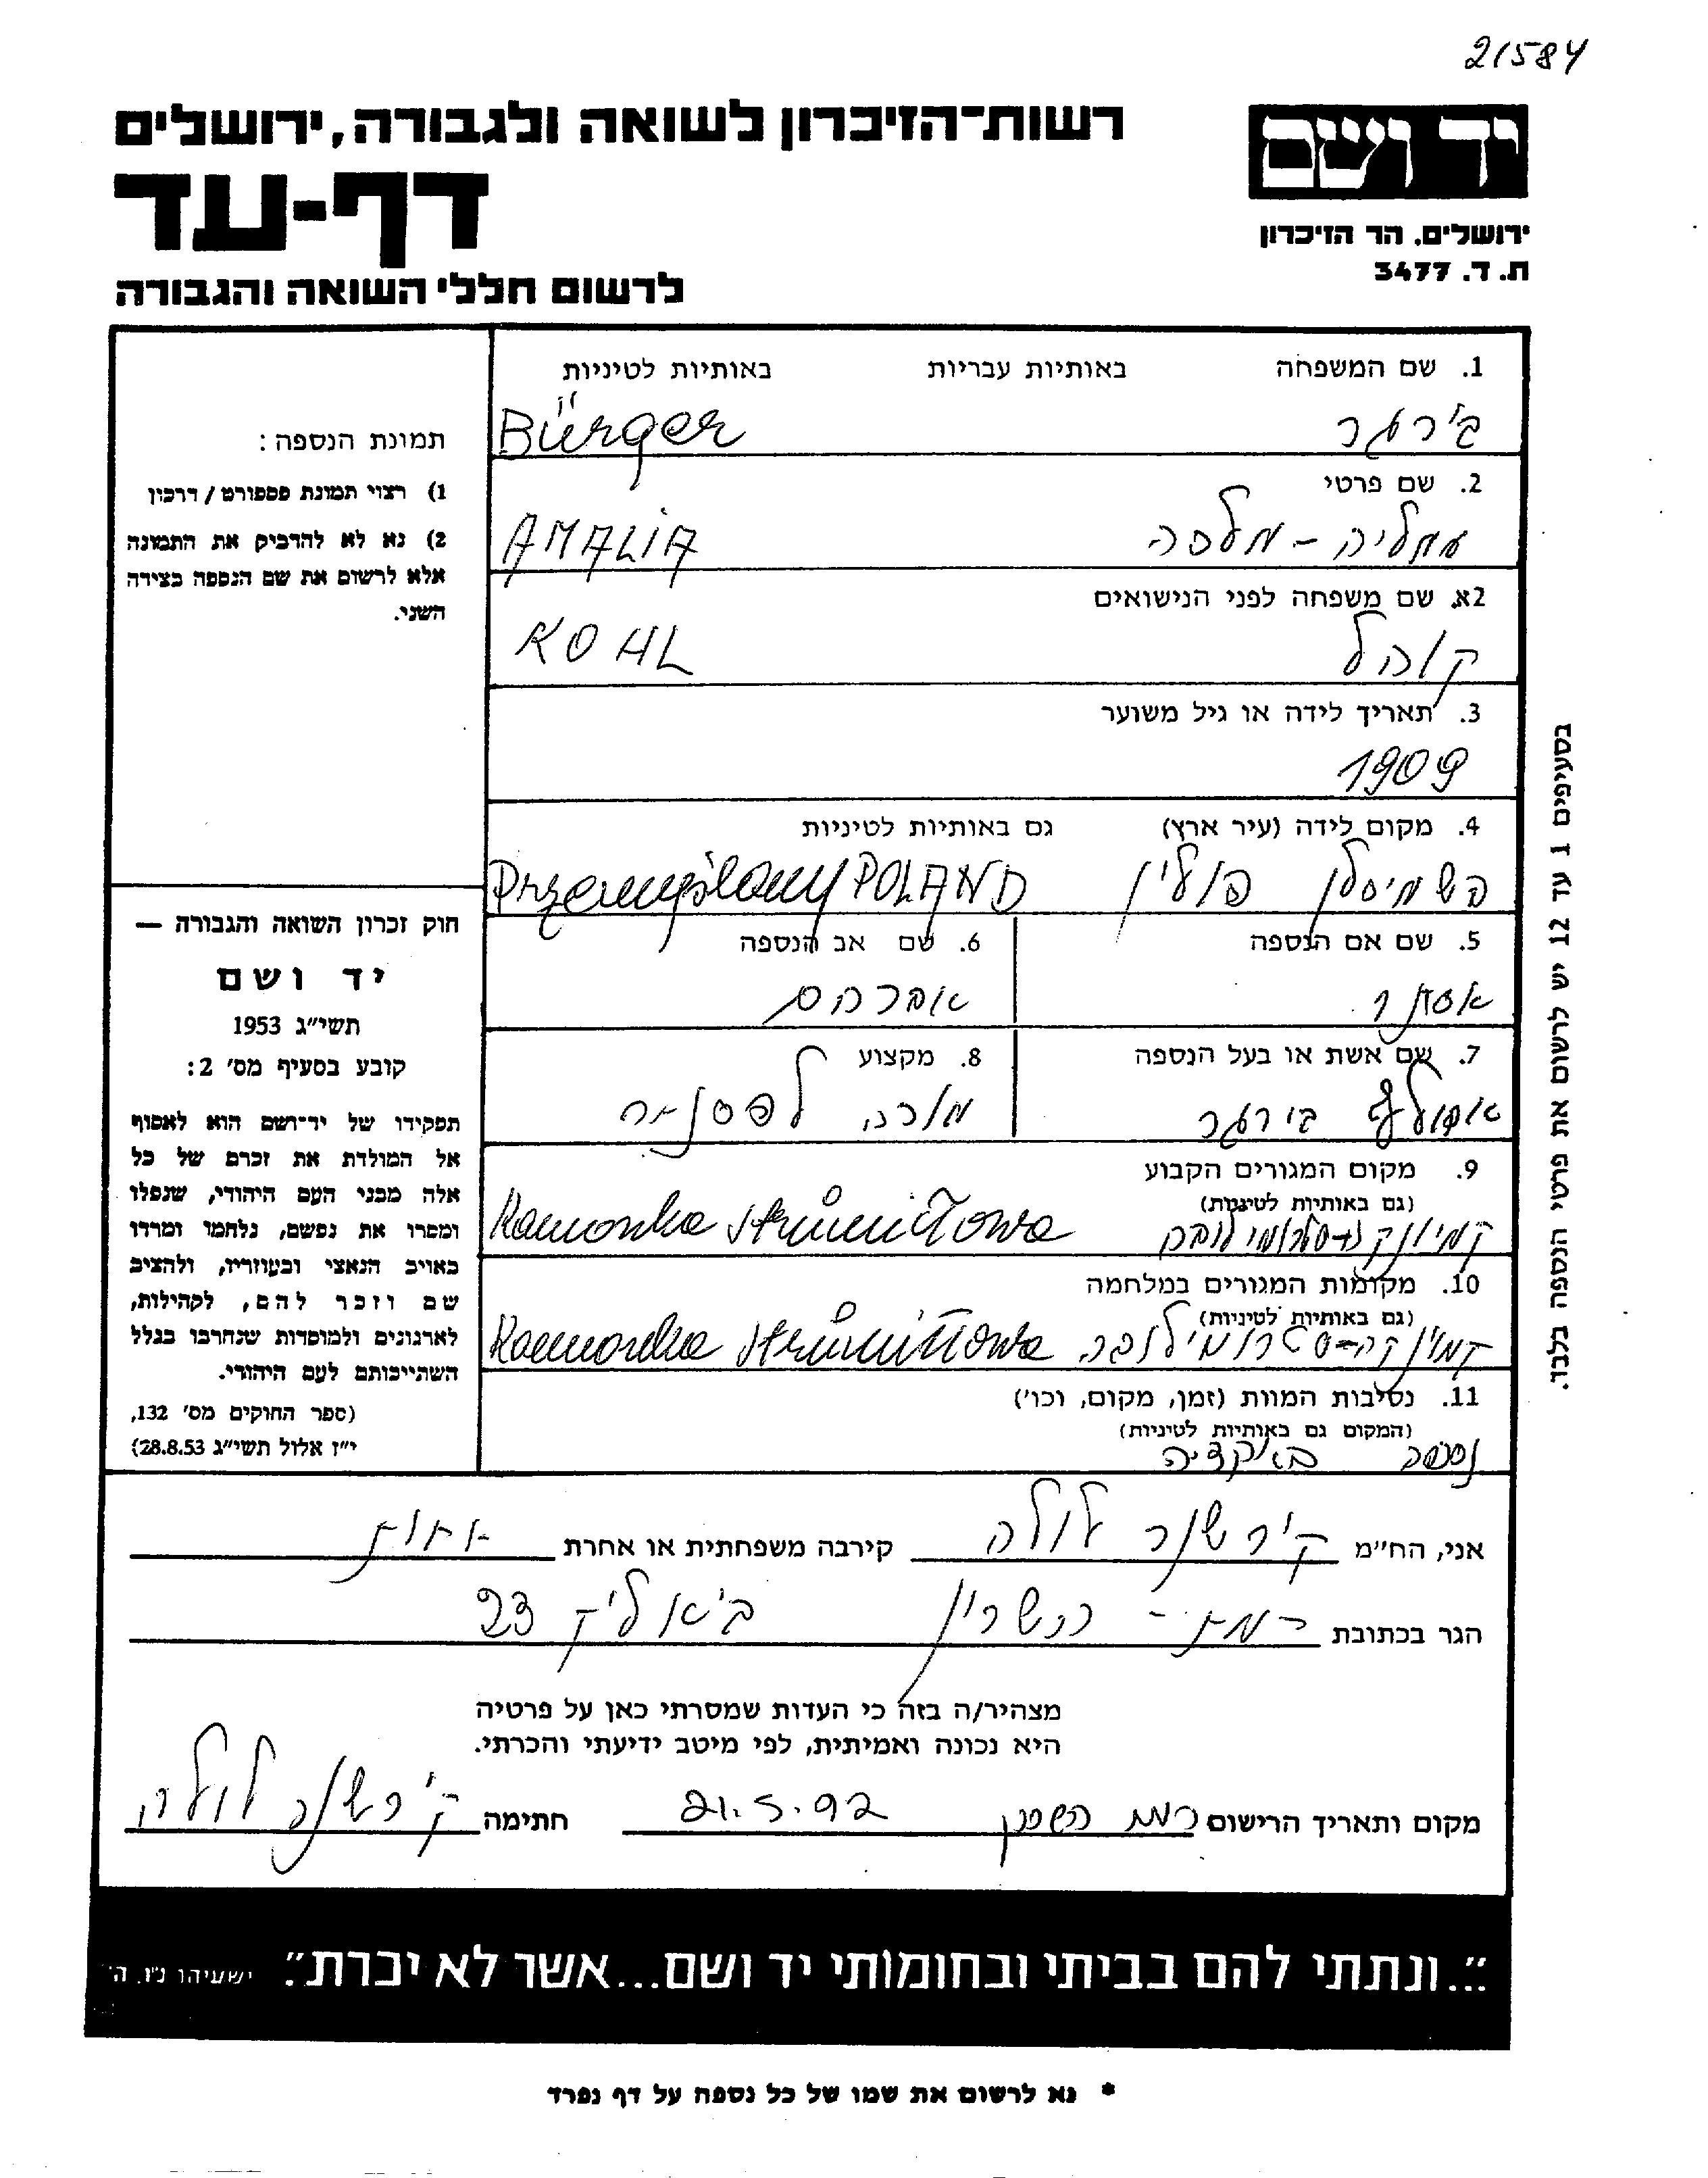 21584
יד ושם
רשות־הזיכרון לשואה ולגבורה, ירושלים
דף-עד
ירושלים. הר הזיכרון
ת. ד. 3477
לרשום חללי השואה והגבורה
1. שם המשפחה באותיות עבריות באותיות לטיניות
בירגר Bürger
2. שם פרטי
עמליה - מלכה AMALIA
2א. שם משפחה לפני הנישואים
קוהל KOHL
3. תאריך לידה או גיל משוער
1909
4. מקום לידה (עיר ארץ) גם באותיות לטיניות
פשמיסלן פולין Przemyślany POLAND
5. שם אם הנספה
אסתר
6. שם אב הנספה
אברהם
7. שם אשת או בעל הנספה
אדולף בירגר
8. מקצוע
מורה לפסנתר
9. מקום המגורים הקבוע
(גם באותיות לטיניות)
Kamonka Strumiłowa
10. מקומות המגורים במלחמה
(גם באותיות לטיניות)
קמיונקה-סטרומילובה Kamonka Strumiłowa
11. נסיבות המוות (זמן, מקום, וכו')
(המקום גם באותיות לטיניות)
נספה באקציה
תמונת הנספה:
1) רצוי תמונת פספורט / דרכון
2) נא לא להדביק את התמונה
אלא לרשום את שם הנספה בצידה
השני.
חוק זכרון השואה והגבורה —
יד ושם
תשי״ג 1953
קובע בסעיף מס׳ 2:
תפקידו של יד־ושם הוא לאסוף
אל המולדת את זכרם של כל
אלה מבני העם היהודי, שנפלו
ומסרו את נפשם, נלחמו ומרדו
באויב הנאצי ובעוזריו, ולהציב
שם וזכר להם, לקהילות,
לארגונים ולמוסדות שנחרבו בגלל
השתייכותם לעם היהודי.
(ספר החוקים מס׳ 132,
י״ז אלול תשי״ג 28.8.53)
בסעיפים 1 עד 12 יש לרשום את פרטי הנספה בלבד.
אני, הח״מ קירשנר לולה קירבה משפחתית או אחרת אחות
הגר בכתובת רמת - השרון ביאליק 23
מצהיר/ה בזה כי העדות שמסרתי כאן על פרטיה
היא נכונה ואמיתית, לפי מיטב ידיעתי והכרתי.
מקום ותאריך הרישום רמת השרון 21.5.92 חתימה קירשנר לולה
״...ונתתי להם בביתי ובחומותי יד ושם...אשר לא יכרת״. ישעיהו נ״ו. ה׳
* נא לרשום את שמו של כל נספה על דף נפרד